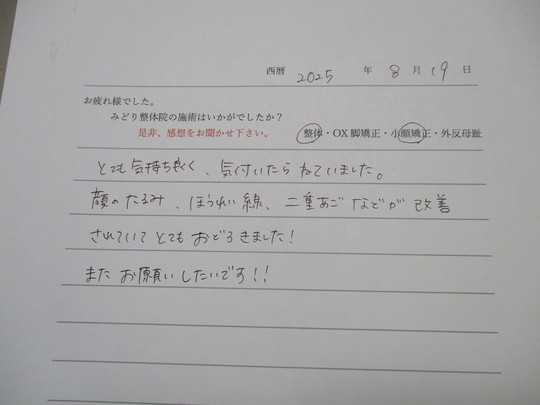 西暦 2025 年 8 月 19 日
お疲れ様でした。
みどり整体院の施術はいかがでしたか？
是非、感想をお聞かせ下さい。 整体・OX脚矯正・小顔矯正・外反母趾
とても気持ち良く、気付いたらねていました。
顔のたるみ、ほうれい線、二重あごなどが改善
されていてとてもおどろきました！
またお願いしたいです！！